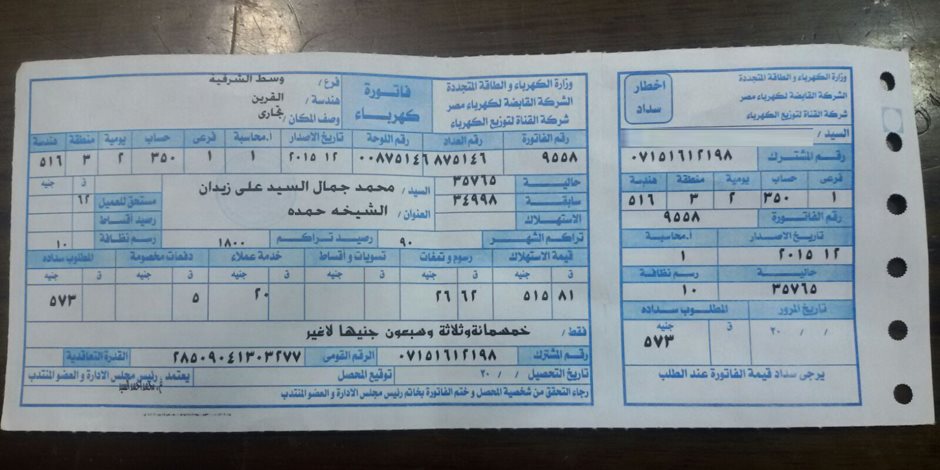 وزارة الكهرباء و الطاقة المتجددة
الشركة القابضة لكهرباء مصر
شركة القناة لتوزيع الكهرباء
اخطار سداد
السيد /
رقم المشترك ٠٧١٥١٦١٢١٩٨
فرعى حساب يومية منطقة هندسة
١ ٣٥٠ ٢ ٣ ٥١٦
رقم الفاتورة ٩٥٥٨
تاريخ الاصدار أ.محاسبة
١٢ ٢٠١٥ ١
حالية رسم نظافة
٣٥٧٦٥ ١٠
تاريخ المرور المطلوب سداده
/ / ٢٠ ق جنيه
٥٧٣
يرجى سداد قيمة الفاتورة عند الطلب
وزارة الكهرباء و الطاقة المتجددة
الشركة القابضة لكهرباء مصر
شركة القناة لتوزيع الكهرباء
فاتورة كهرباء
فرع / وسط الشرقية
هندسة / القرين
وصف المكان / تجارى
رقم الفاتورة رقم العداد رقم اللوحة تاريخ الاصدار أ.محاسبة فرعى حساب يومية منطقة هندسة
٩٥٥٨ ٨٧٥١٤٦ ٠٠٨٧٥١٤٦ ١٢ ٢٠١٥ ١ ١ ٣٥٠ ٢ ٣ ٥١٦
حالية ٣٥٧٦٥
سابقة ٣٤٩٩٨
الاستهلاك
السيد / محمد جمال السيد على زيدان
العنوان / الشيخه حمده
ق جنيه
مستحق للعميل ٦٢
رصيد أقساط
تراكم الشهر ٩٠ رصيد تراكم ١٨٠٠ رسم نظافة ١٠
قيمة الاستهلاك رسوم و تمغات تسويات و أقساط خدمة عملاء دفعات مخصومة المطلوب سداده
ق جنيه ق جنيه ق جنيه ق جنيه ق جنيه ق جنيه
٨١ ٥١٥ ٦٢ ٢٦ ٢٠ ٥ ٥٧٣
فقط / خمسمائة وثلاثة وسبعون جنيها لاغير
رقم المشترك ٠٧١٥١٦١٢١٩٨ الرقم القومى ٢٨٥٠٩٠٤١٣٠٣٢٧٧ القدرة التعاقدية
تاريخ التحصيل / / ٢٠ توقيع المحصل يعتمد رئيس مجلس الادارة و العضو المنتدب
رجاء التحقق من شخصية المحصل و ختم الفاتورة بخاتم رئيس مجلس الادارة و العضو المنتدب